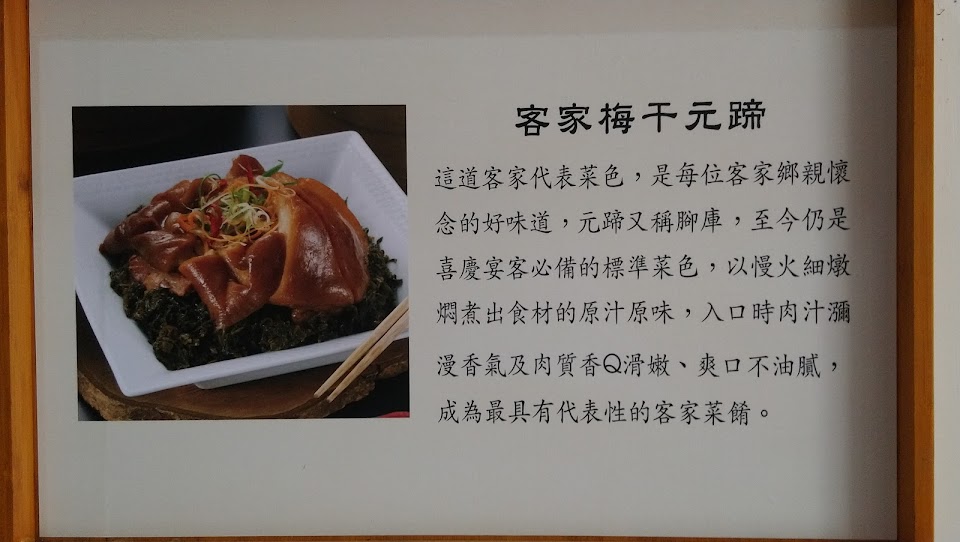 客家梅干元蹄
這道客家代表菜色，是每位客家鄉親懷
念的好味道，元蹄又稱腳庫，至今仍是
喜慶宴客必備的標準菜色，以慢火細燉
燜煮出食材的原汁原味，入口時肉汁瀰
漫香氣及肉質香Q滑嫩、爽口不油膩，
成為最具有代表性的客家菜餚。